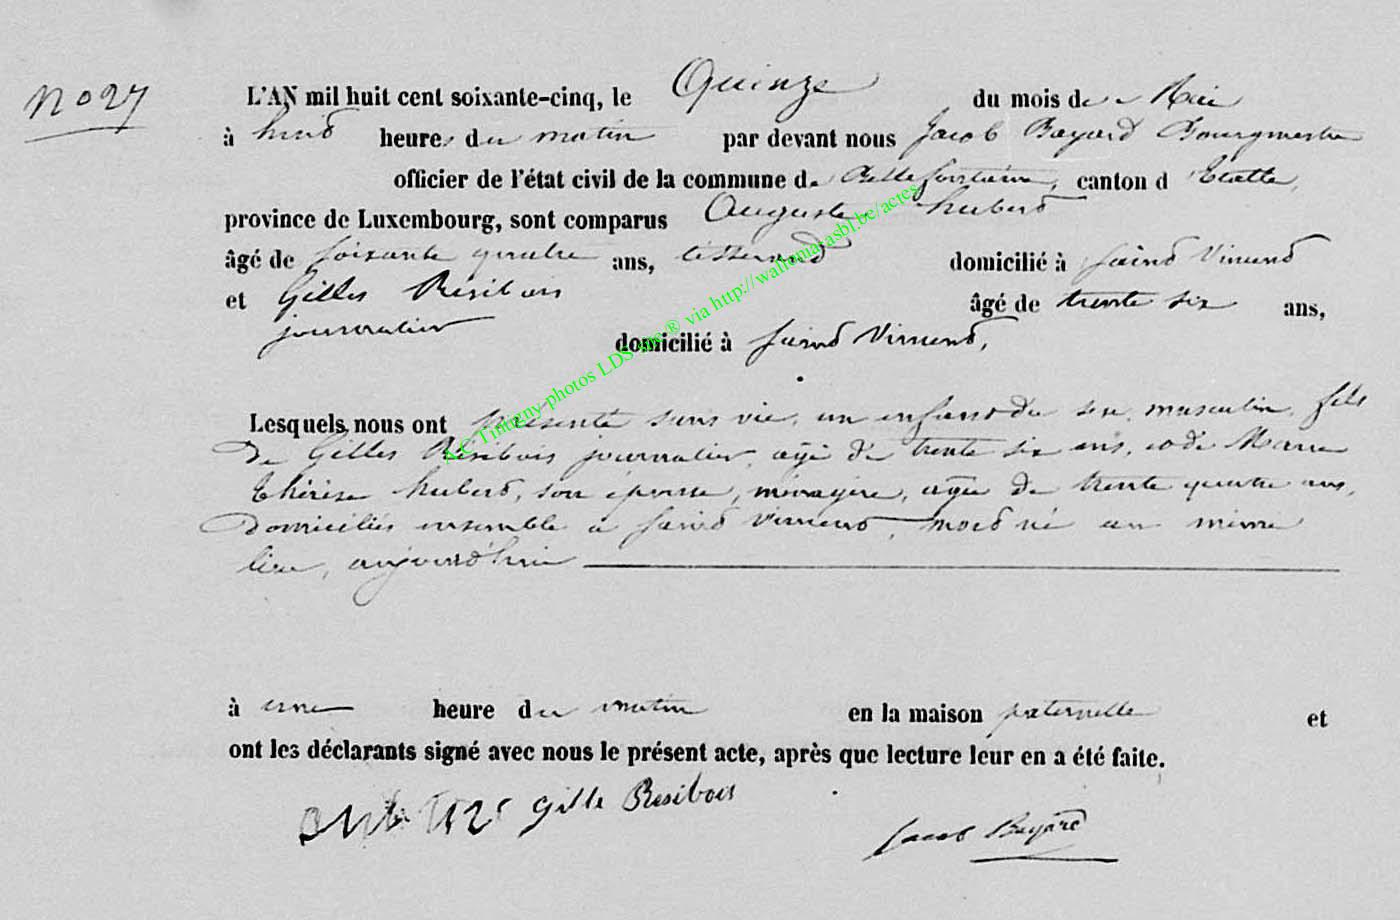 No 27
L'AN mil huit cent soixante-cinq, le Quinze du mois de Mai
à huit heures du matin par devant nous Jacob Bayard Bourgmestre
officier de l'état civil de la commune de Bellefontaine, canton d Etalle,
province de Luxembourg, sont comparus Auguste Hubert
âgé de soixante quatre ans, tisserand domicilié à Saint Vincent
et Gilles Résibois âgé de trente six ans,
journalier domicilié à Saint Vincent,
Lesquels nous ont présenté sans vie, un enfant du sexe masculin, fils
de Gilles Résibois journalier, âgé de trente six ans, et de Marie
Thérèse Hubert, son épouse, ménagère, âgée de trente quatre ans,
domiciliés ensemble à Saint Vincent, mort né au même
lieu, aujourd'hui
à une heure du matin en la maison paternelle et
ont les déclarants signé avec nous le présent acte, après que lecture leur en a été faite.
Gille Resibois
Jacob Bayard
A.C Tintigny photos LDS ® via http://wallonia.asbl.be/actes